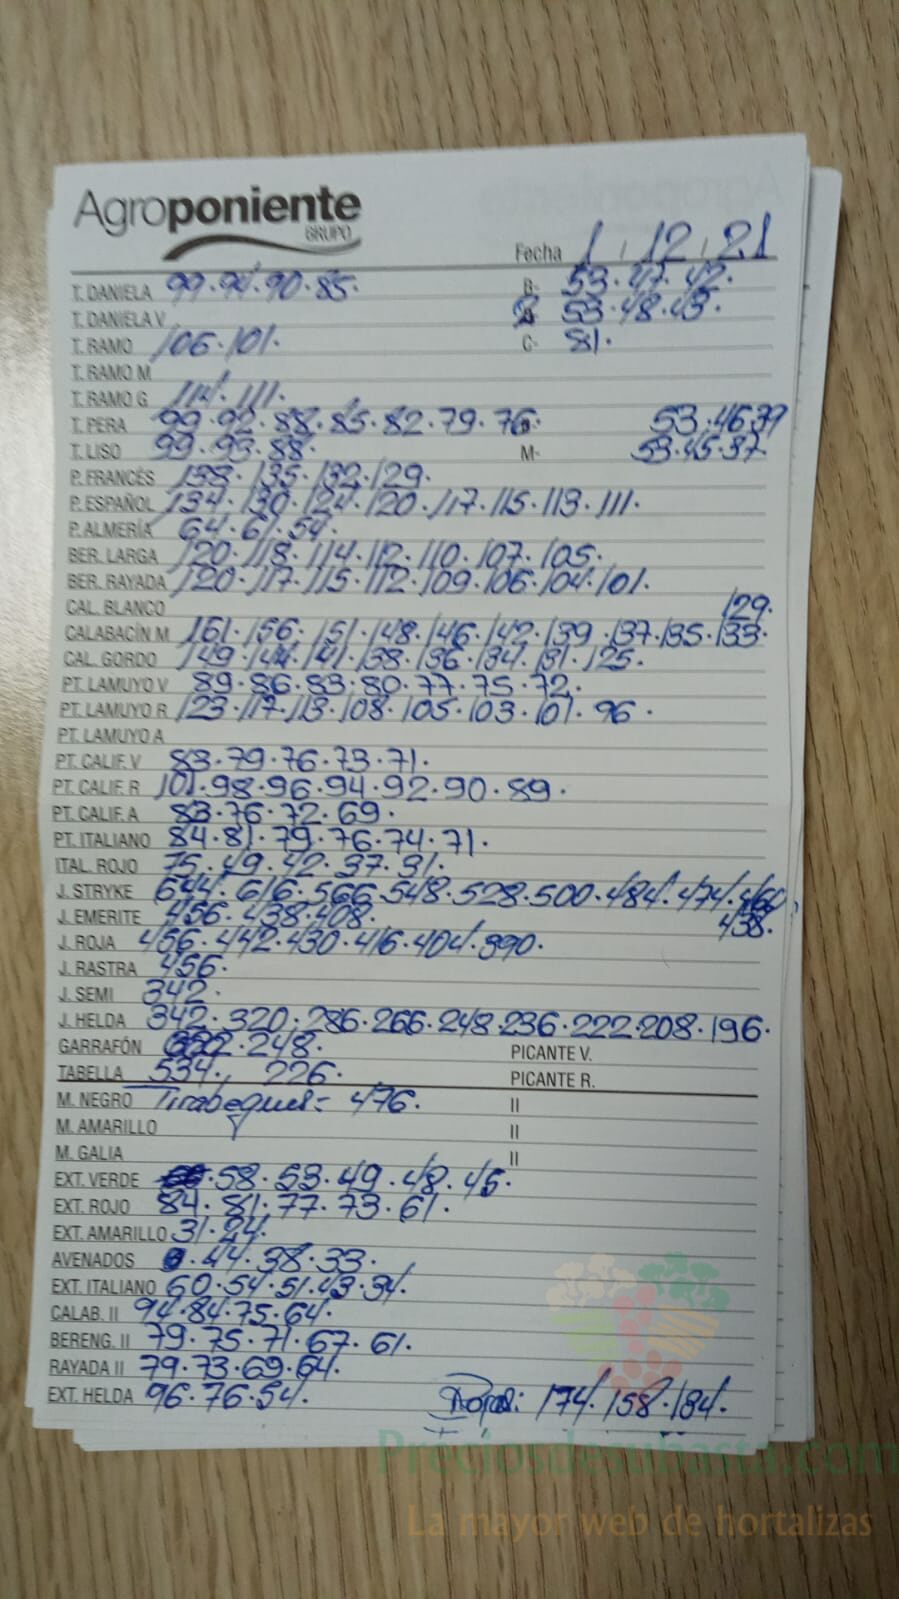 Agroponiente
GRUPO
Fecha 1 12 21
T. DANIELA 99·94·90·85· B- 53·47·42·
T. DANIELA V 53·48·43·
T. RAMO 106·101· C- 81·
T. RAMO M
T. RAMO G 114·111·
T. PERA 99·92·88·85·82·79·76· 53·46·39
T. LISO 99·93·88· M- 53·45·37
P. FRANCÉS 138·135·132·129·
P. ESPAÑOL 134·130·124·120·117·115·113·111·
P. ALMERÍA 64·61·54·
BER. LARGA 120·118·114·112·110·107·105·
BER. RAYADA 120·117·115·112·109·106·104·101·
CAL. BLANCO 129·
CALABACÍN M 161·156·151·148·146·142·139·137·135·133·
CAL. GORDO 149·144·141·138·136·134·131·125·
PT. LAMUYO V 89·86·83·80·77·75·72·
PT. LAMUYO R 123·117·113·108·105·103·101·96·
PT. LAMUYO A
PT. CALIF. V 83·79·76·73·71·
PT. CALIF. R 101·98·96·94·92·90·89·
PT. CALIF. A 83·76·72·69·
PT. ITALIANO 84·81·79·76·74·71·
ITAL. ROJO 75·49·42·37·31·
J. STRYKE 644·616·566·548·528·500·484·474·460
J. EMERITE 456·438·408· 438·
J. ROJA 456·442·430·416·404·390·
J. RASTRA 456·
J. SEMI 342·
J. HELDA 342·320·286·266·248·236·222·208·196·
GARRAFÓN 248· PICANTE V.
TABELLA 534·, 226· PICANTE R.
M. NEGRO Tirabeques= 476· II
M. AMARILLO II
M. GALIA II
EXT. VERDE ·58·53·49·48·45·
EXT. ROJO 84·81·77·73·61·
EXT. AMARILLO 31·24·
AVENADOS ·44·38·33·
EXT. ITALIANO 60·54·51·43·34·
CALAB. II 94·84·75·64·
BERENG. II 79·75·71·67·61·
RAYADA II 79·73·69·64·
EXT. HELDA 96·76·54· 174·158·134·
Preciosdesubasta.com
La mayor web de hortalizas